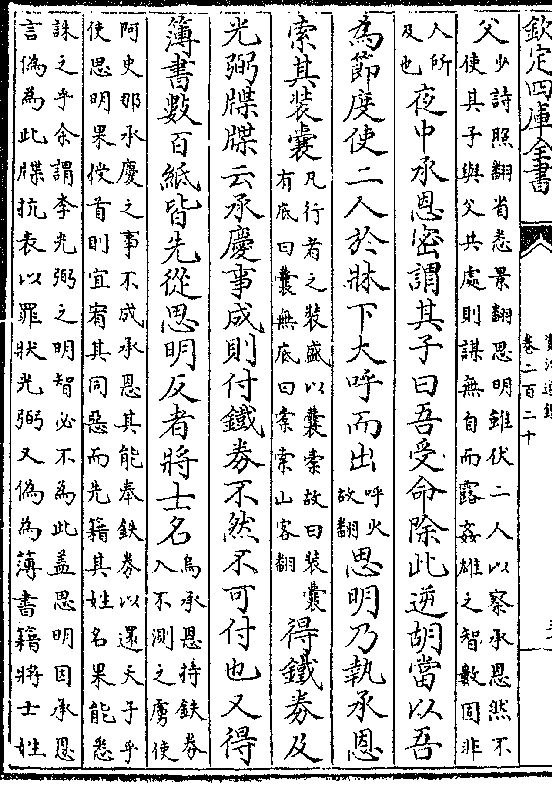 欽定四庫全書
卷二百二十
父少詩照翻省悉景翻思明雖伏二人以察承恩然不
使其子與父共處則謀無自而露姦雄之智數固非
人所
及也夜中承恩密謂其子曰吾受命除此逆胡當以吾
為節度使二人於牀下大呼而出呼火
故翻思明乃執承恩
索其装囊凡行者之装盛以囊索故曰装囊
有底曰囊無底曰索索山客翻得鐵券及
光弼牒牒云承慶事成則付鐵券不然不可付也又得
簿書數百紙皆先從思明反者將士名烏承恩持鉄券
入不測之虜使
阿史那承慶之事不成承恩其能奉鉄券以還天子乎
使思明果授首則宜宥其同惡而先籍其姓名果能悉
誅之乎余謂李光弼之明智必不為此盖思明因承恩
言偽為此牒抗表以罪狀光弼又偽為薄書籍將士姓